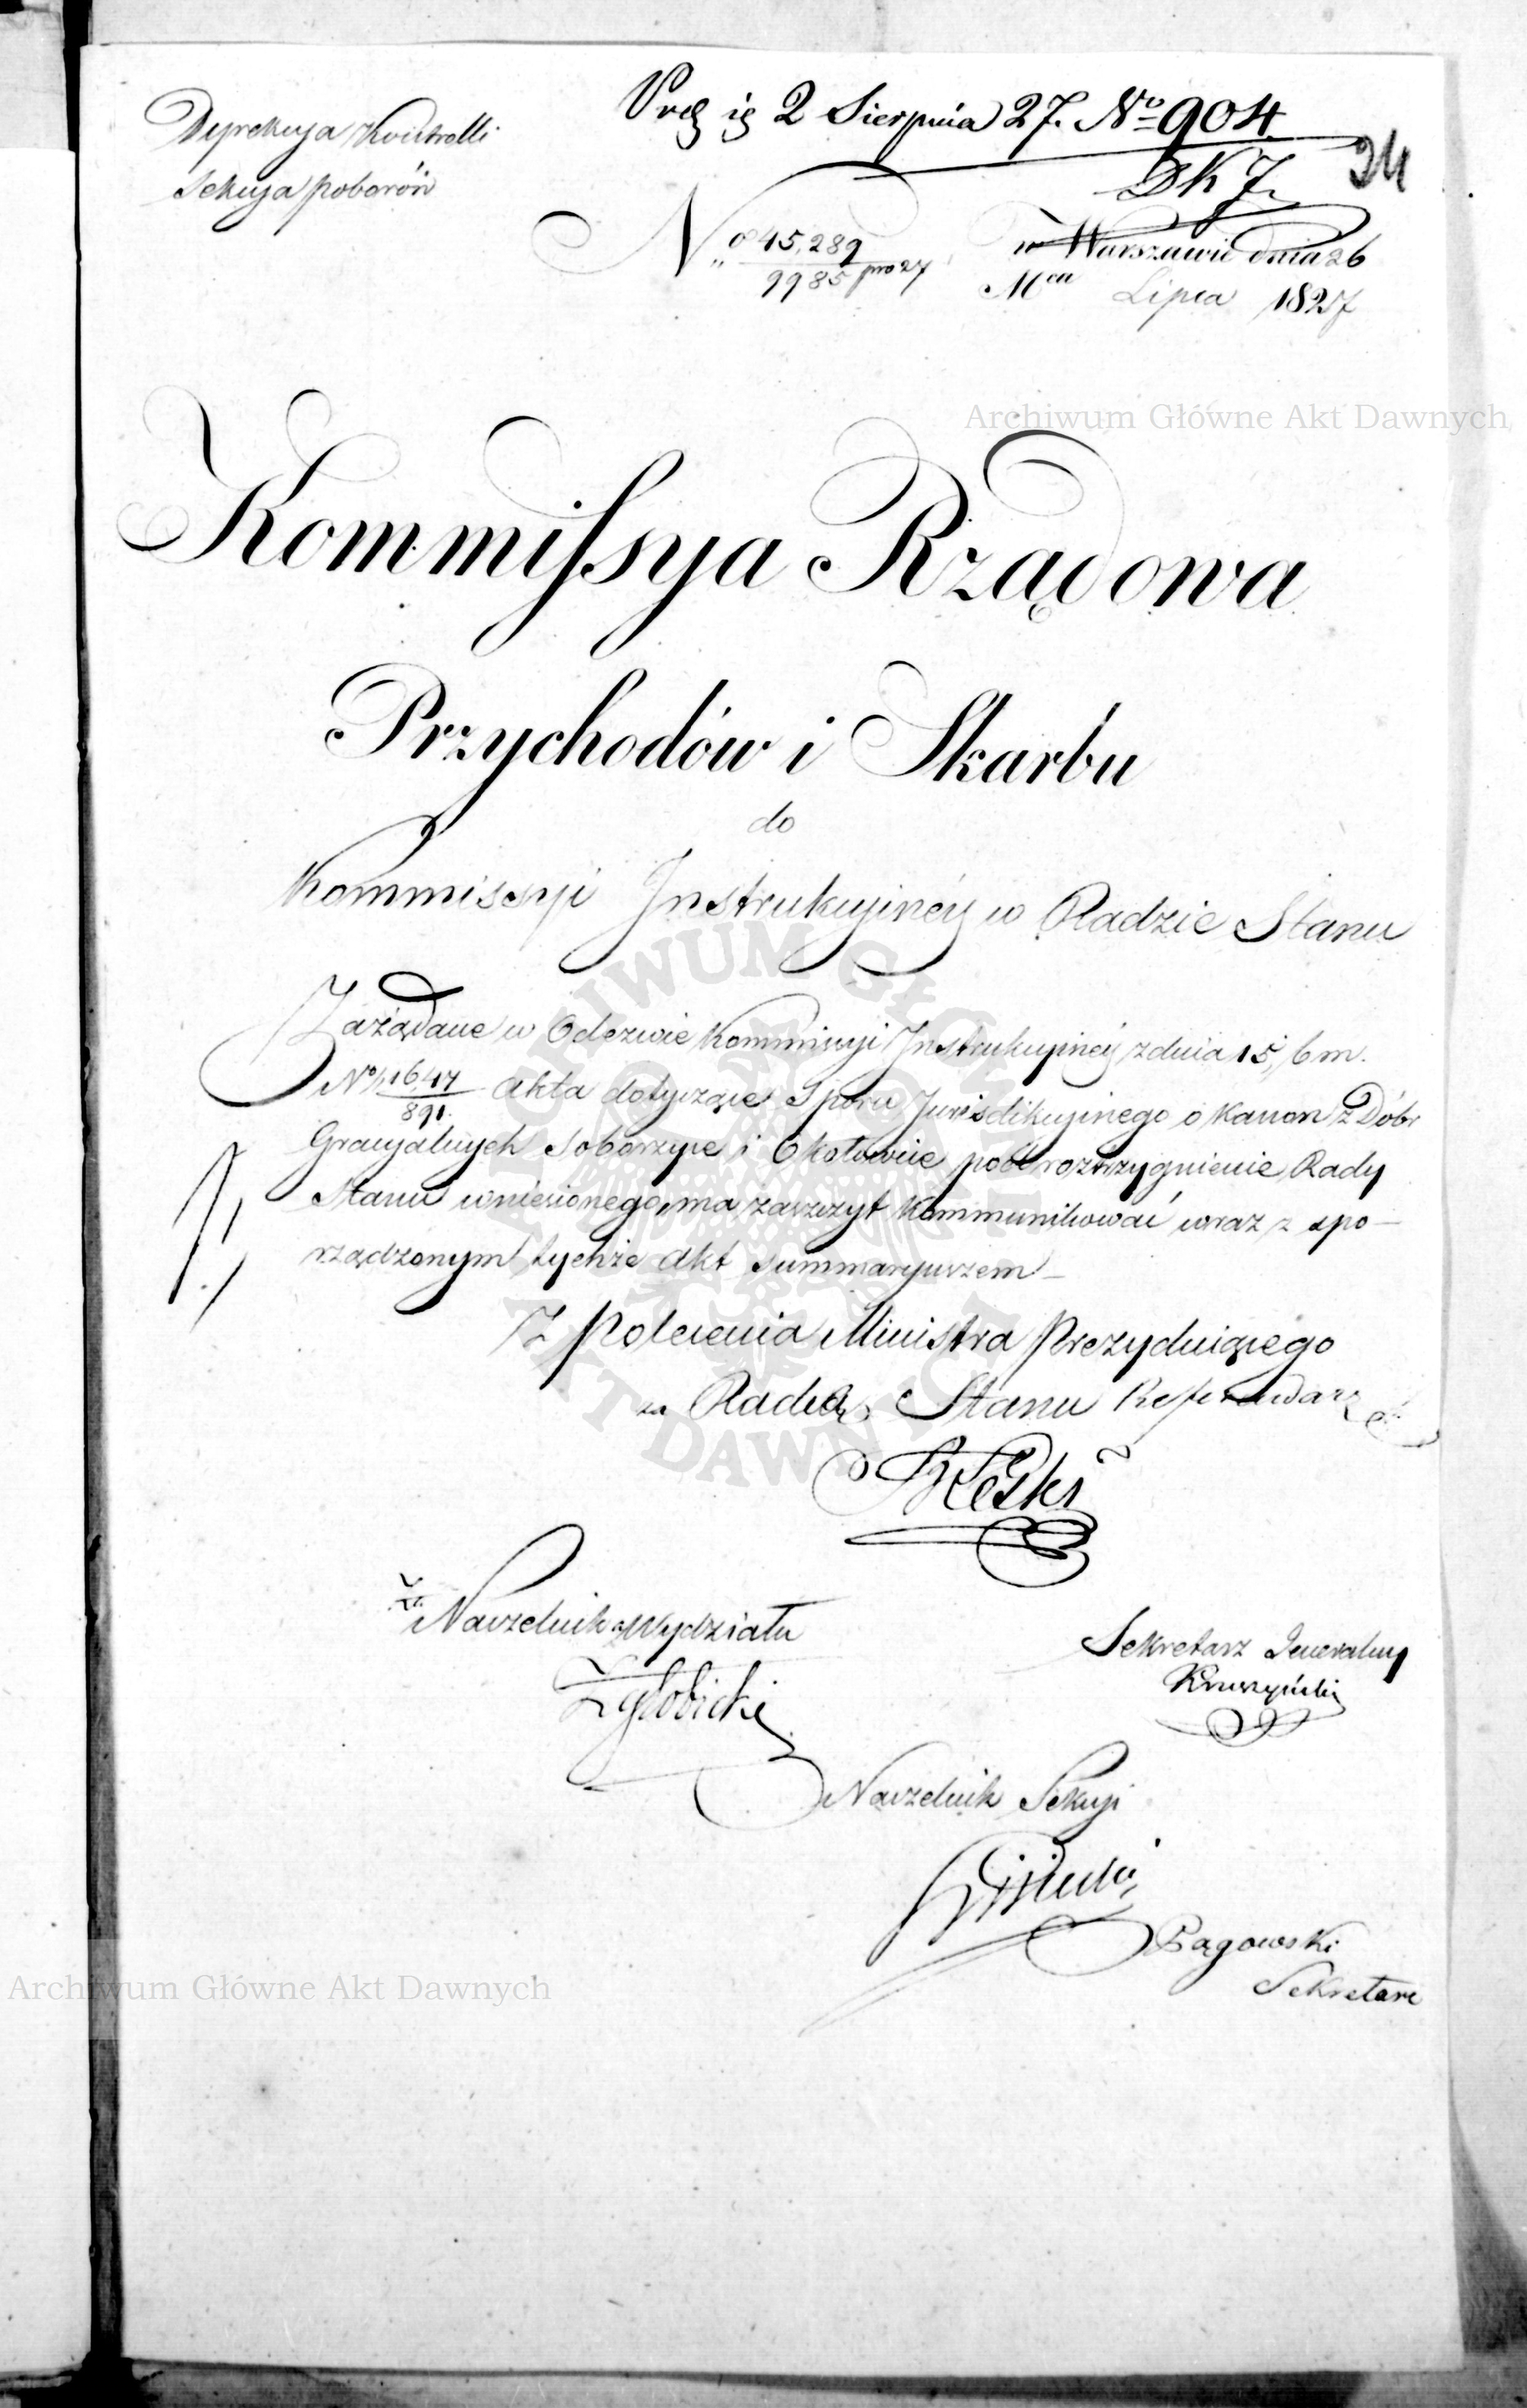 Dyrekcya Kontrolli
Sekcya poborów
2 Sierpnia 27. No 904
DKJ
24
No 45,289
9985 pro 27
w Warszawie dnia 26
Mca Lipca 1827
Archiwum Główne Akt Dawnych
Kommissya Rządowa
Przychodów i Skarbu
do
Kommissyi Instrukcyinéy w Radzie Stanu
Zażądane w Odezwie Kommissyi Instrukcyinéy z dnia 15, b m.
No 16,47
891. akta dotyczące Sporu Jurisdikcyinego o Kanon z Dóbr
Gracyalnych Soborzyce i Okołowice pod rozstrzygnienie Rady
Stanu wniesionego, ma zaszczyt kommunikować wraz z spo-
rządzonym tychże akt summaryuszem
Z polecenia Ministra Prezyduiącego
za Radcę Stanu Referendarz
ARCHIWUM GŁÓWNE AKT DAWNYCH
za Naczelnik Wydziału
Zgłobicki
Sekretarz Jeneralny
Kruszyński
Naczelnik Sekcyi
Bagowski
Sekretarz
Archiwum Główne Akt Dawnych